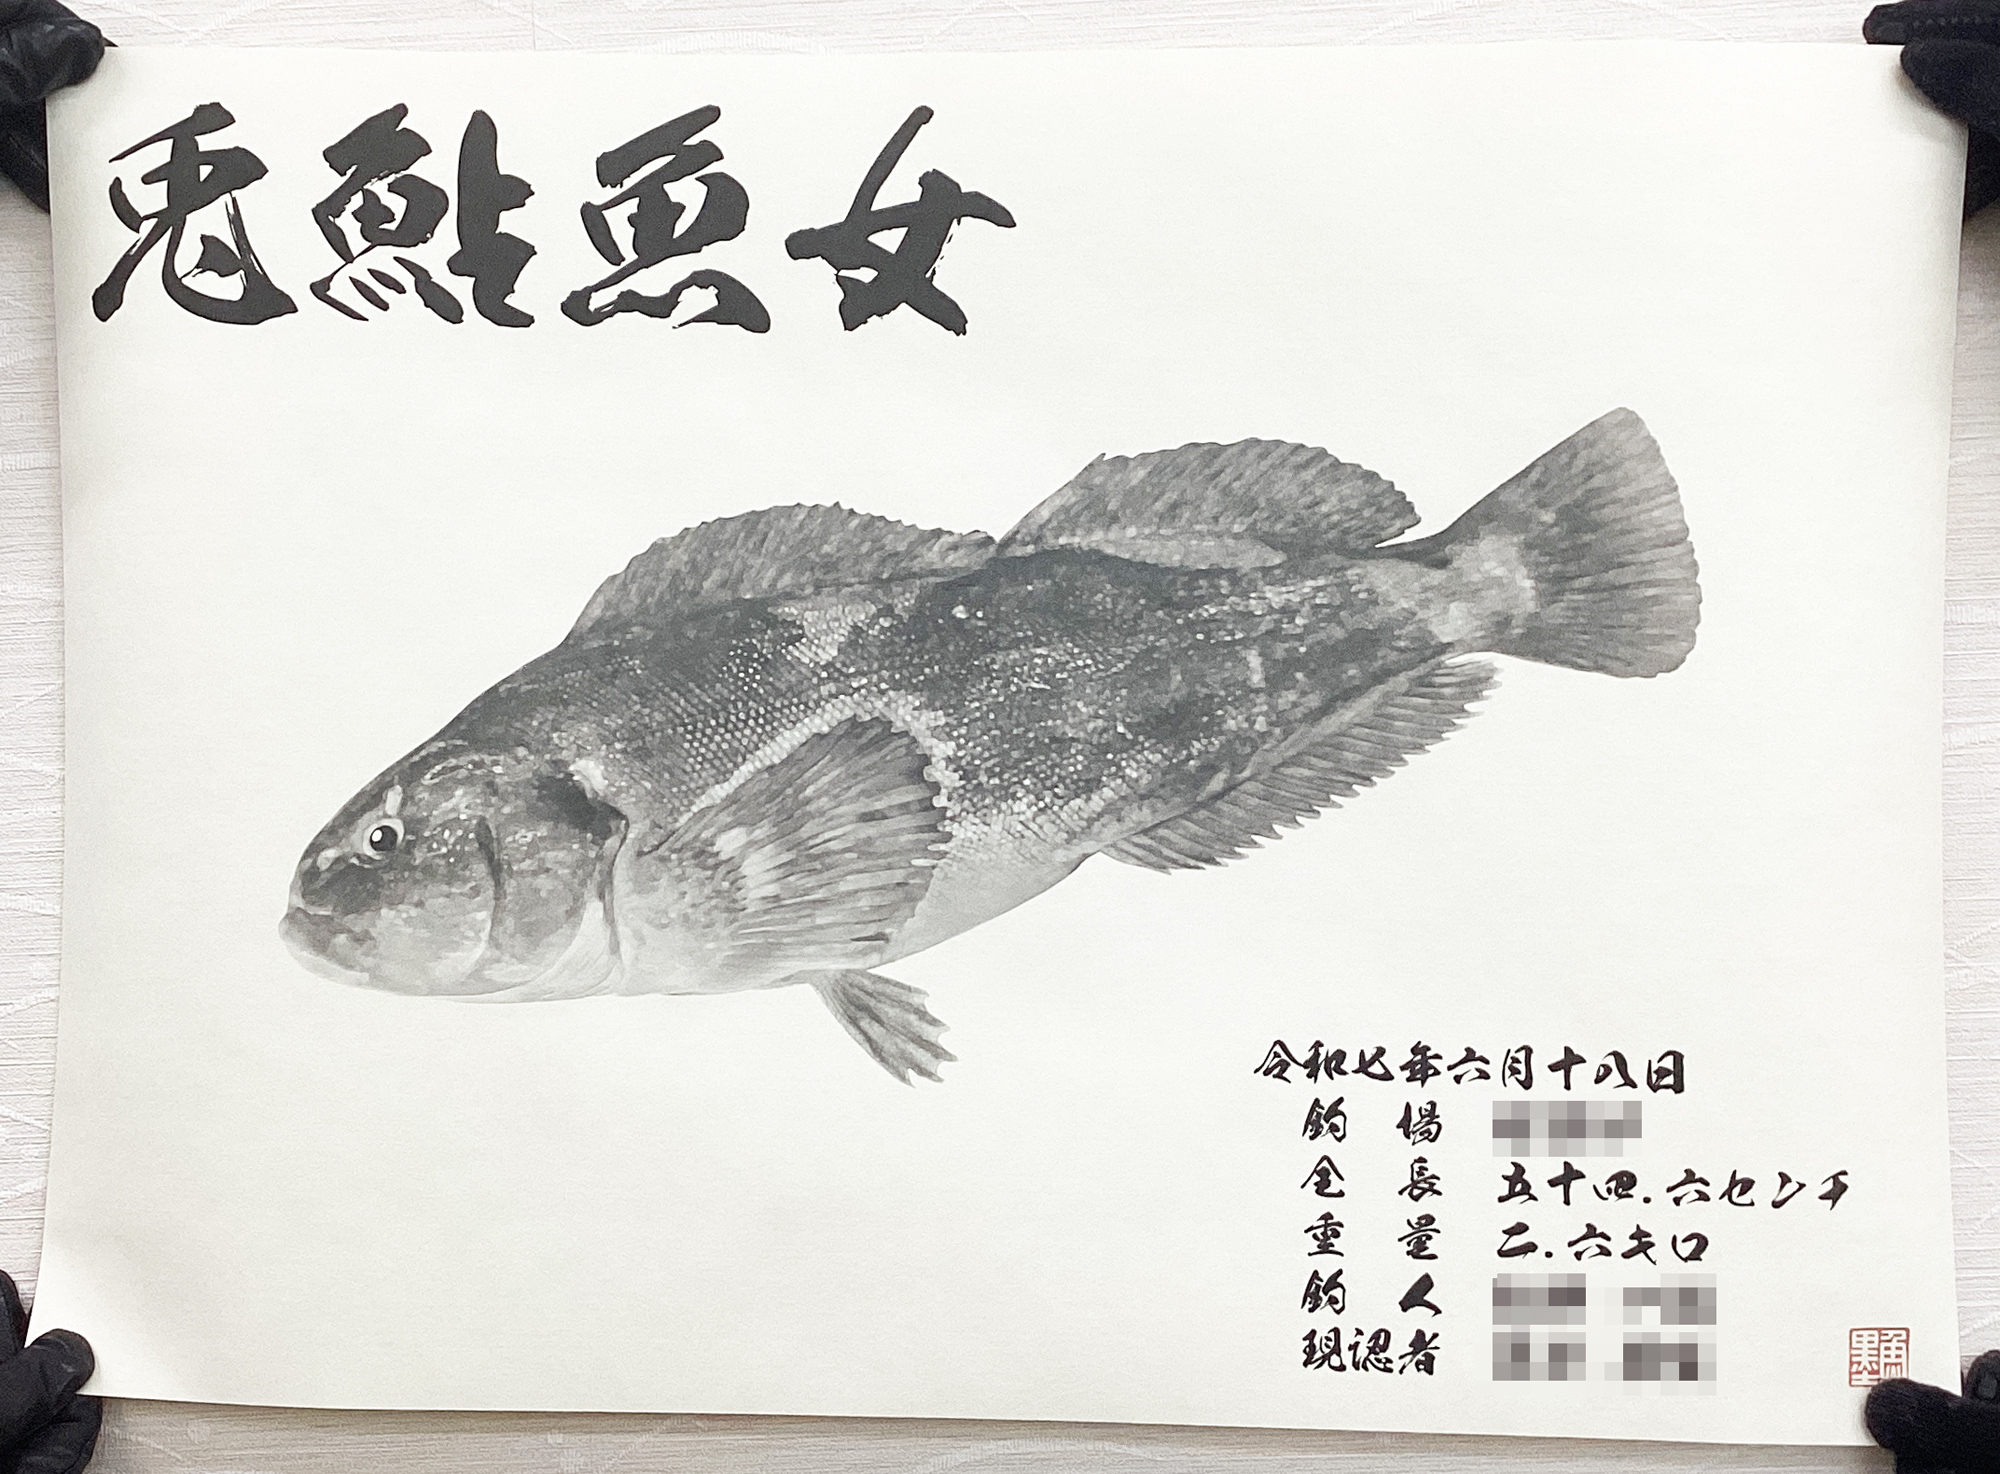 兎鮎魚女
令和七年六月十八日
釣場
全長 五十四.六センチ
重量 二.六キロ
釣人
現認者
魚墨